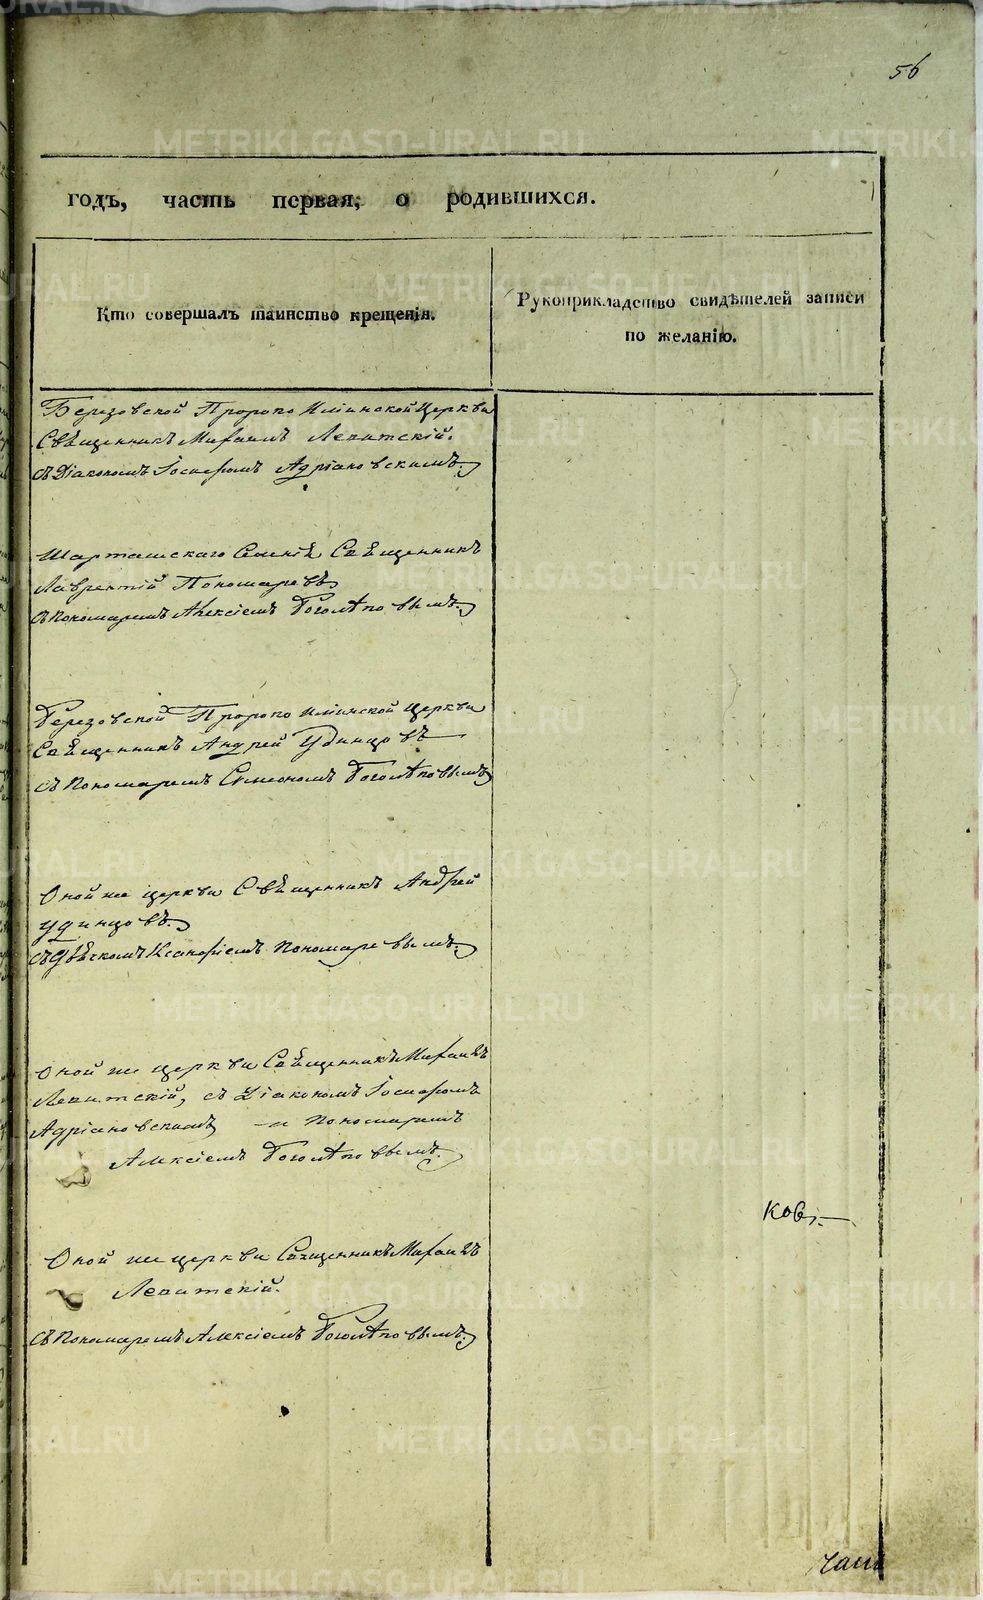 56
годъ, часть первая, о родившихся.
Кто совершалъ таинство крещенія.
Рукоприкладство свидѣтелей записи
по желанію.
Березовской Пророко Илiинской Церкви
Священникъ Михаилъ Левитскій.
съ Діакономъ Іосифомъ Адріановскимъ.
Шарташскаго Селенія Священникъ
Лаврентій Пономаревъ
съ Пономаремъ Алексіемъ Боголѣповымъ.
Березовской Пророко Илiинской Церкви
Священникъ Андрей Удинцовъ
съ Пономаремъ Симеономъ Боголѣповымъ
Оной же церкви Священникъ Андрей
Удинцовъ.
съ Дьячкомъ Ксанофіемъ Пономаревымъ.
Оной же церкви Священникъ Михаилъ
Левитскій, съ Діакономъ Іосифомъ
Адріановскимъ и Пономаремъ
Алексіемъ Боголѣповымъ.
ковъ
Оной же церкви Священникъ Михаилъ
Левитскій.
съ Пономаремъ Алексіемъ Боголѣповымъ.
METRIKI.GASO-URAL.RU